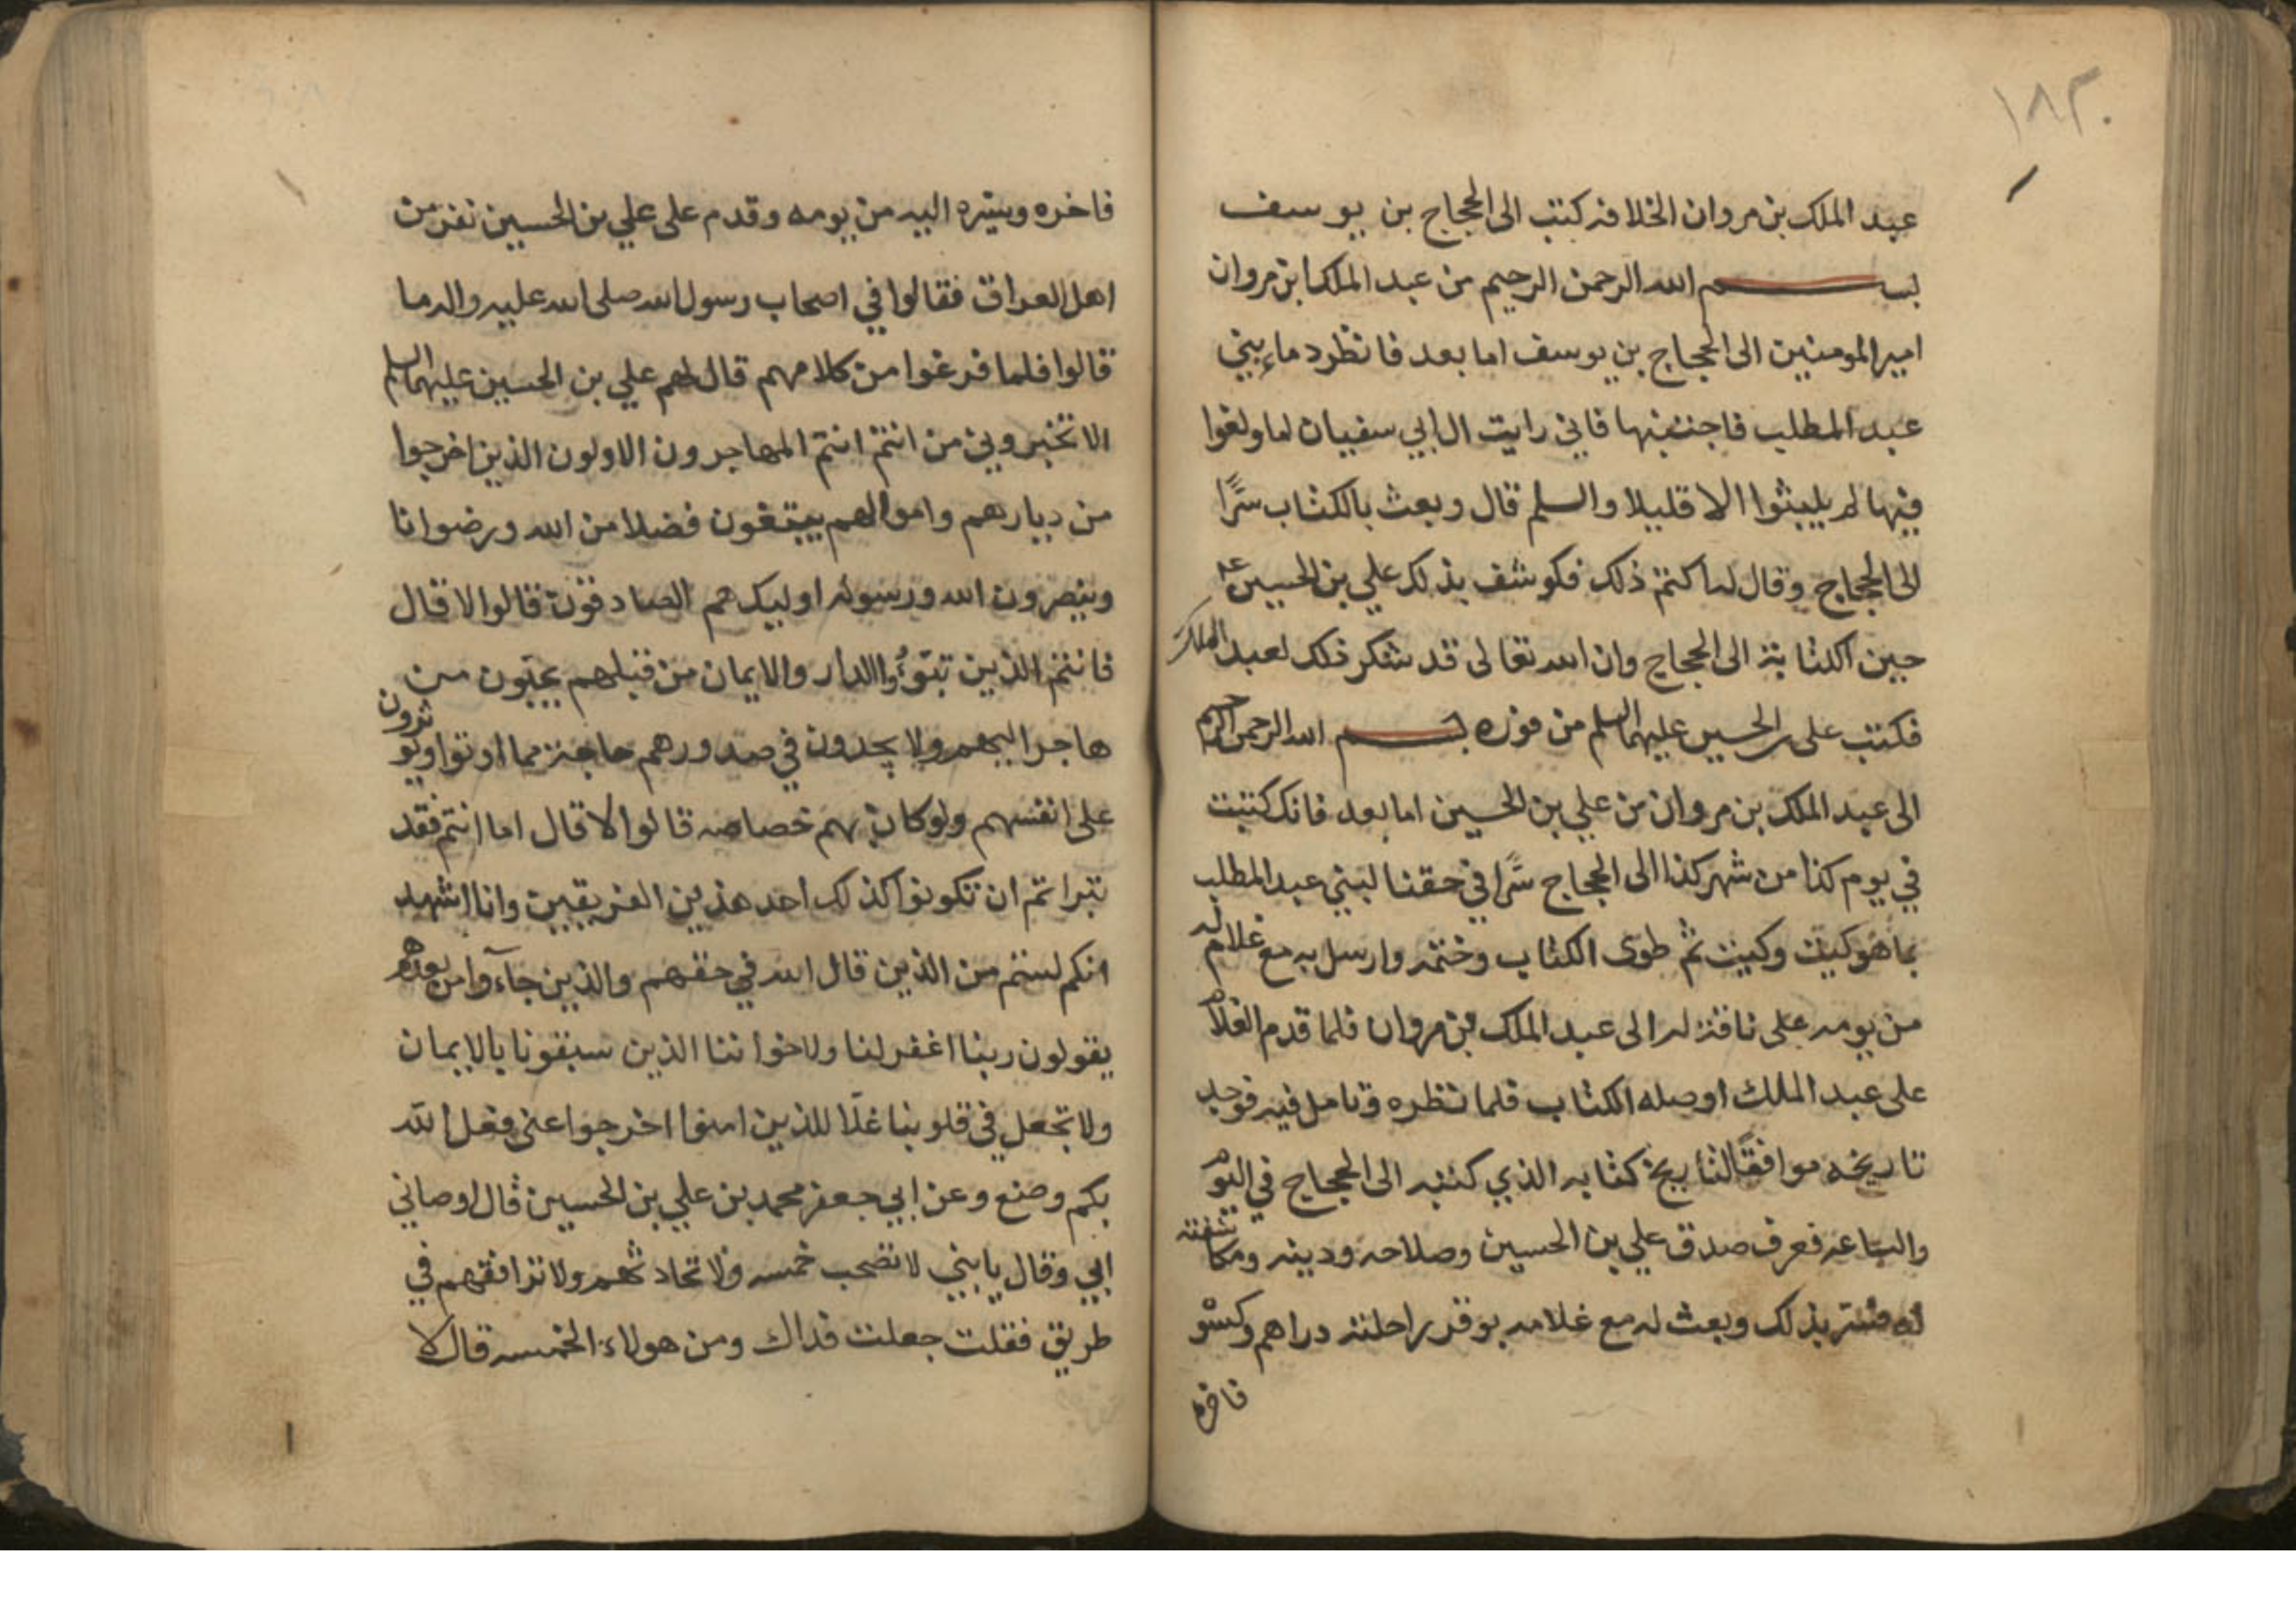 ١٨٣
عبد الملك بن مروان الخلافة كتب الى الحجاج بن يوسف
بسم الله الرحمن الرحيم من عبد الملك ابن مروان
امير المومنين الى الحجاج بن يوسف اما بعد فانظر دماء بني
عبد المطلب فاجتنبها فاني رايت ال ابي سفيان لما ولغوا
فيها لم يلبثوا الا قليلا والسلم قال وبعث بالكتاب سرًا
الى الحجاج وقال له اكتم ذلك فكوشف بذلك علي بن الحسين ع
حين الكتابة الى الحجاج وان الله تعالى قد شكر ذلك لعبد الملك
فكتب على بن الحسين عليهما السلم من فوره بسم الله الرحمن الرحيم
الى عبد الملك بن مروان من علي بن الحسين اما بعد فانك كتبت
في يوم كذا من شهر كذا الى الحجاج سرًا في حقنا لبني عبد المطلب
بما هو كيت وكيت ثم طوى الكتاب وختمه وارسل به مع غلام له
من يومه على ناقة له الى عبد الملك بن مروان فلما قدم الغلام
على عبد الملك اوصله الكتاب فلما نظره وتامل فيه فوجد
تاريخه موافقًا لتاريخ كتابه الذي كتبه الى الحجاج في اليوم
والساعه فعرف صدق علي بن الحسين وصلاحه ودينه ومكاشفته
له فسر بذلك وبعث له مع غلامه بوقر راحلته دراهم وكسو
فاخره
فاخره وسيره اليه من يومه وقدم على علي بن الحسين نفر من
اهل العراق فقالوا في اصحاب رسول الله صلى الله عليه واله ما
قالوا فلما فرغوا من كلامهم قال لهم علي بن الحسين عليهما السلم
الا تخبروني من انتم انتم المهاجرون الاولون الذين اخرجوا
من ديارهم واموالهم يبتغون فضلا من الله ورضوانا
وينصرون الله ورسوله اوليك هم الصادقون قالوا لا قال
فانتم الذين تبوّؤا الدار والايمان من قبلهم يحبّون من
هاجر اليهم ولا يجدون في صدورهم حاجة مما اوتوا ويوثرون
على انفسهم ولو كان بهم خصاصه قالوا لا قال اما انتم فقد
تبراتم ان تكونوا كذلك احد هذين الفريقين وانا اشهد
انكم لستم من الذين قال الله في حقهم والذين جآءوا من بعدهم
يقولون ربنا اغفر لنا ولاخواننا الذين سبقونا بالايمان
ولا تجعل في قلوبنا غلّا للذين امنوا اخرجوا عنى فعل الله
بكم وصنع وعن ابي جعفر محمد بن علي بن الحسين قال اوصاني
ابي وقال يا بني لا تصحب خمسه ولا تحادثهم ولا ترافقهم في
طريق فقلت جعلت فداك ومن هولاء الخمسه قال لا